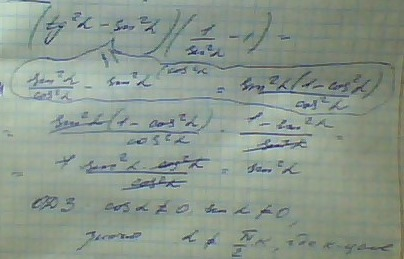 (tg²α − sin²α)(1/sin²α − 1) =
sin²α/cos²α − sin²α = sin²α(1 − cos²α)/cos²α
= sin²α(1 − cos²α)/cos²α · 1 − sin²α/sin²α =
= 1 · sin²α · cos²α/cos²α = sin²α
ОДЗ cos α ≠ 0 sin α ≠ 0,
α ≠ π/2 k, где k-целое